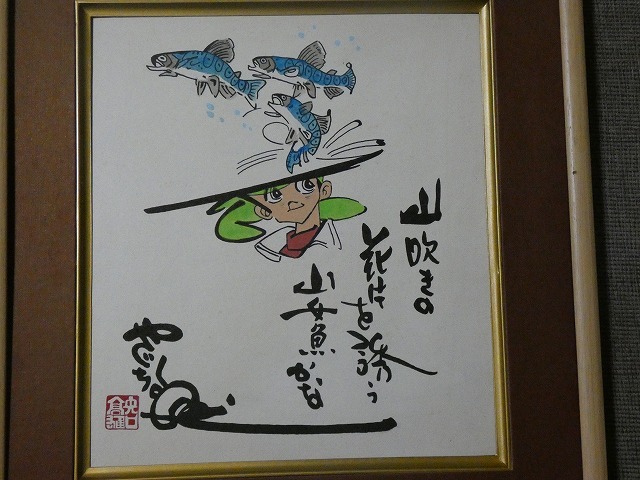 山吹きの
花片を誘う
山女魚かな
やぐち
矢口
高雄